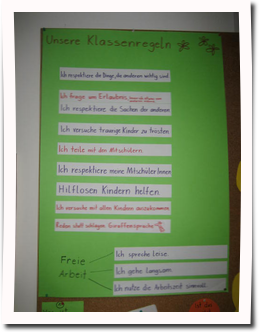 Unsere Klassenregeln
Ich respektiere die Dinge, die anderen wichtig sind.
Ich frage um Erlaubnis,
Ich respektiere die Sachen der anderen
Ich versuche traurige Kinder zu trösten
Ich teile mit den Mitschülern
Ich respektiere meine MitschülerInnen
Hilflosen Kindern helfen
Ich versuche mit allen Kindern auszukommen
Reden statt schlagen Giraffensprache
Freie Arbeit
Ich spreche leise.
Ich gehe langsam.
Ich nütze die Arbeitszeit sinnvoll